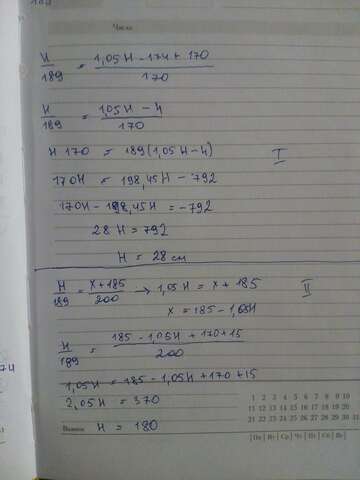 Число
H/189 = (1,05H - 174 + 170)/170
H/189 = (1,05H - 4)/170
H 170 = 189(1,05H - 4) I
170H = 198,45H - 792
170H - 198,45H = -792
28 H = 792
H = 28 см
H/189 = (x + 185)/200 → 1,05H = x + 185 II
x = 185 - 1,05H
H/189 = (185 - 1,05H + 170 + 15)/200
1,05H = 185 - 1,05H + 170 + 15
2,05H = 370
H = 180
Важно
1 2 3 4 5 6 7 8 9 10
11 12 13 14 15 16 17 18 19 20
21 22 23 24 25 26 27 28 29 30 31
|Пн|Вт|Ср|Чт|Пт|Сб|Вс|